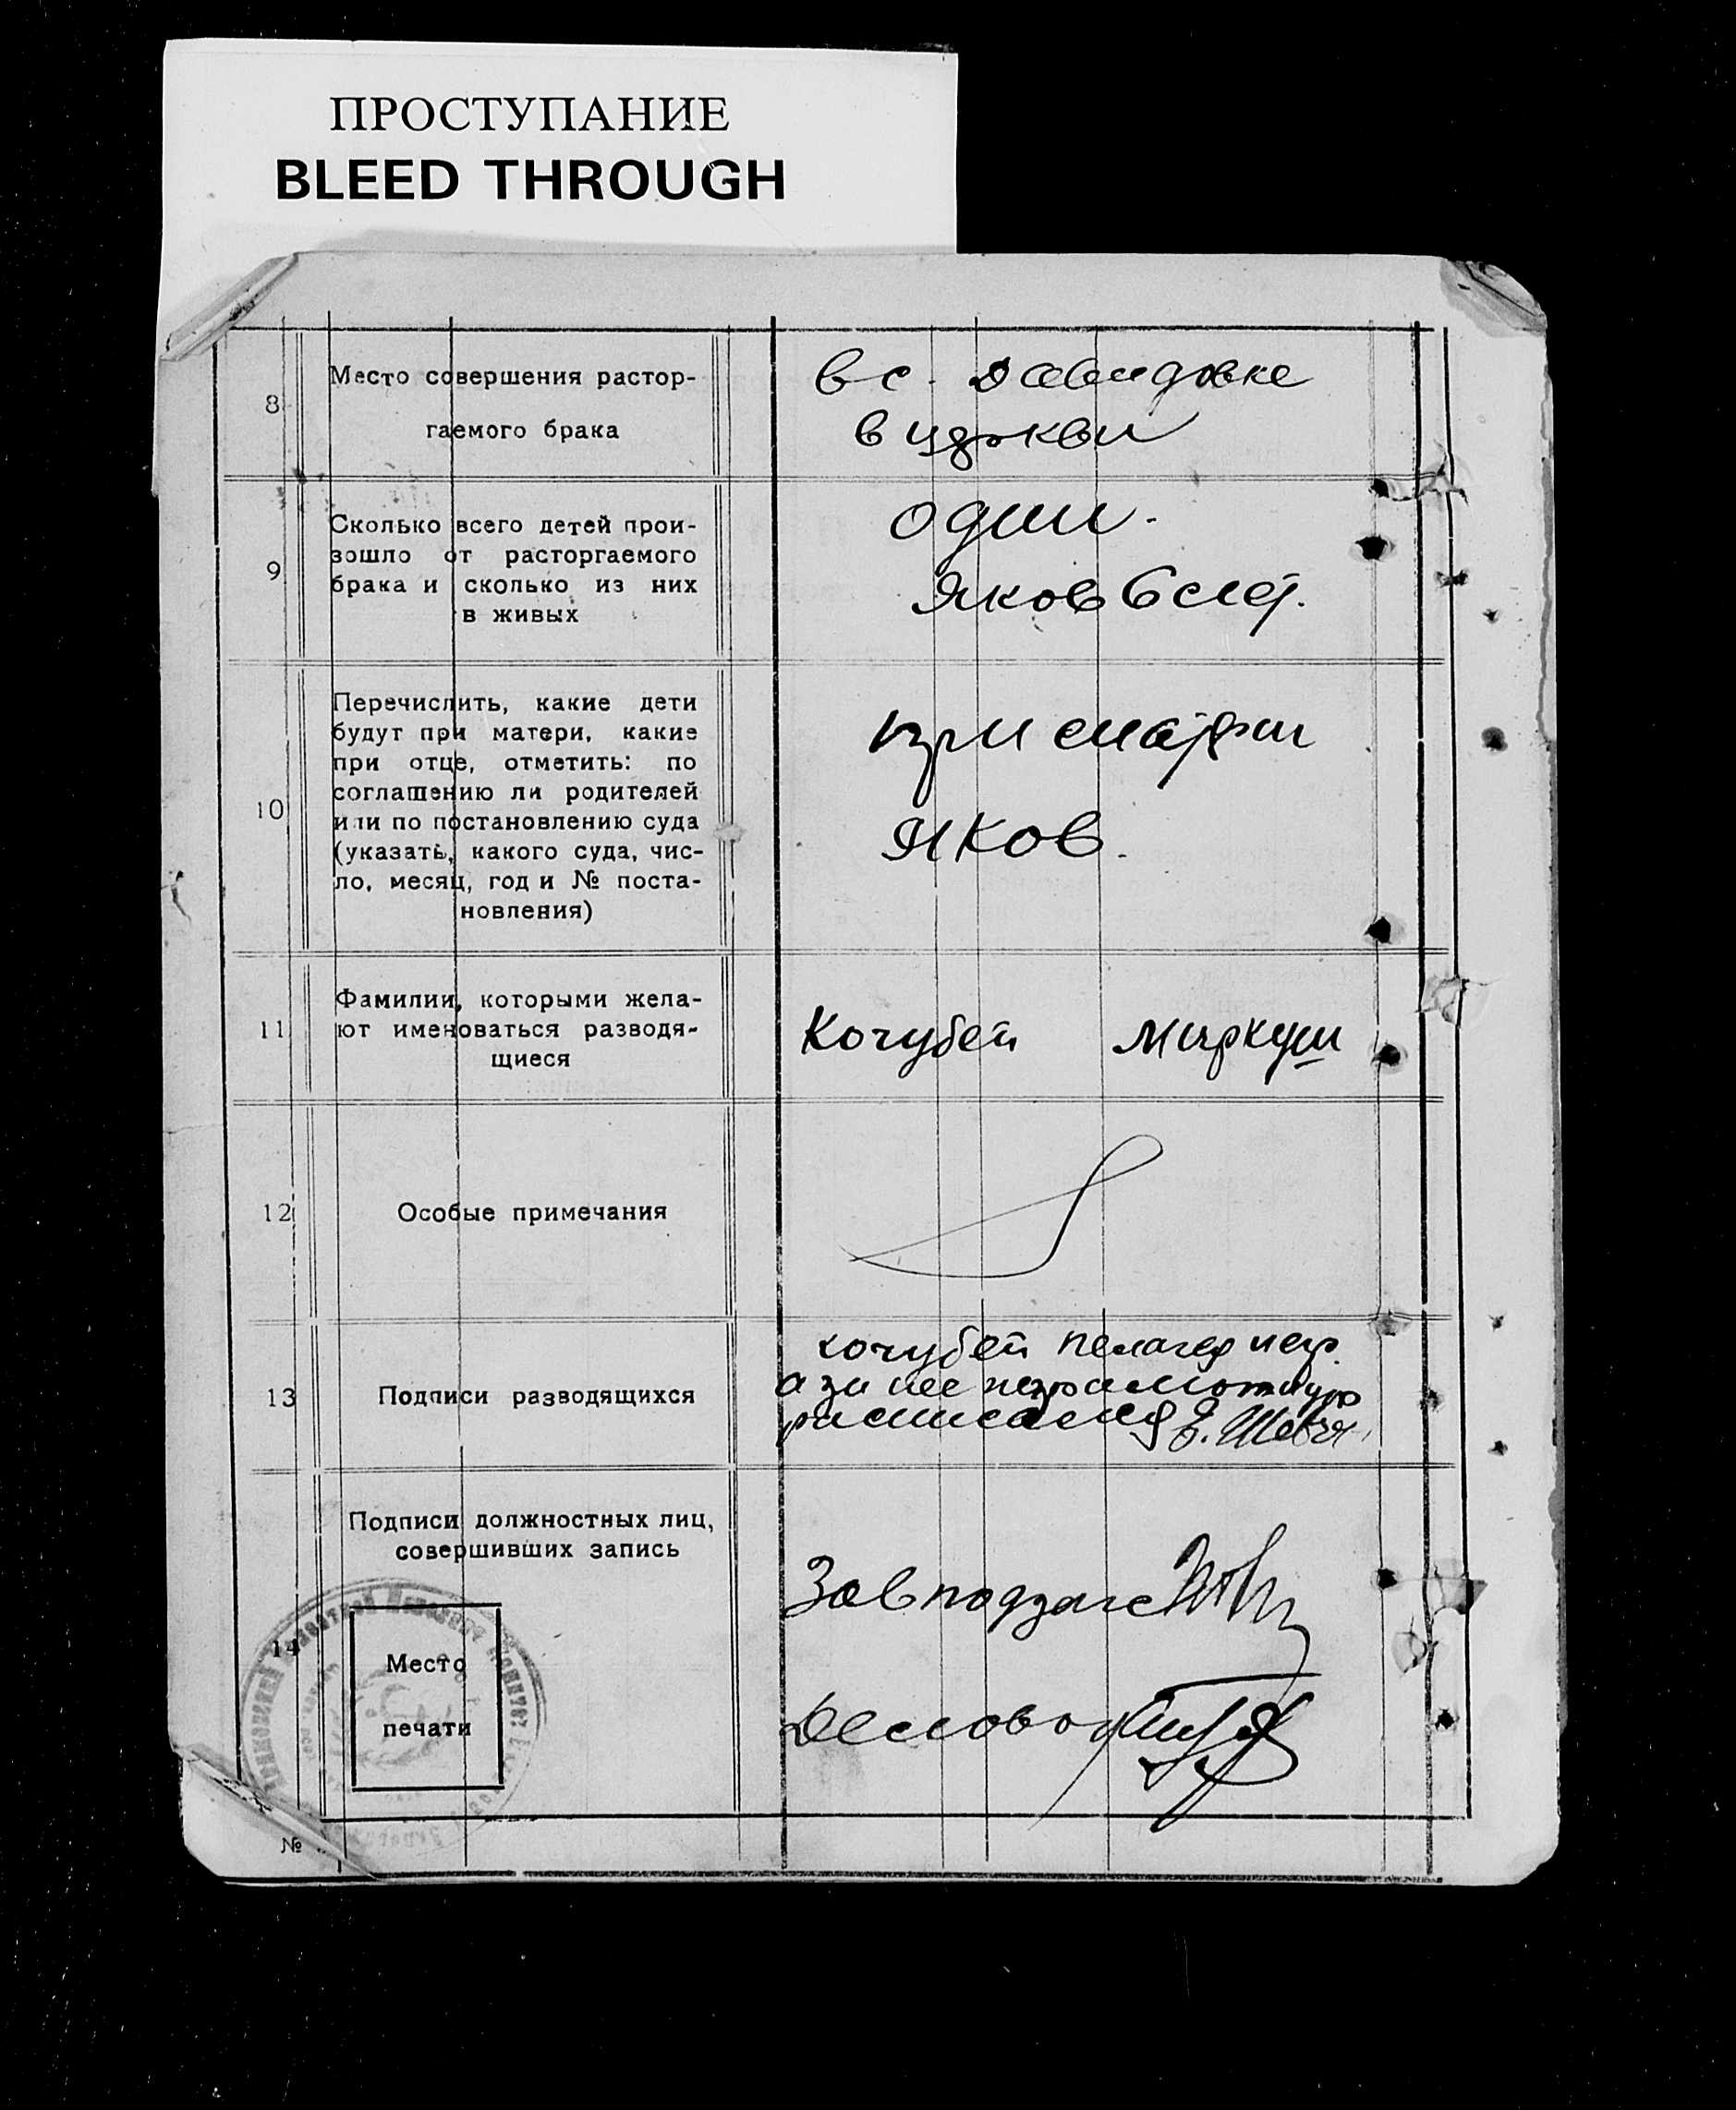 ПРОСТУПАНИЕ
BLEED THROUGH
8
Место совершения растор-
гаемого брака
в с. Давидовке
в церкви
9
Сколько всего детей прои-
зошло от расторгаемого
брака и сколько из них
в живых
один.
Яков 6 лет.
10
Перечислить, какие дети
будут при матери, какие
при отце, отметить: по
соглашению ли родителей
или по постановлению суда
(указать, какого суда, чис-
ло, месяц, год и № поста-
новления)
при матери
Яков.
11
Фамилии, которыми жела-
ют именоваться разводя-
щиеся
Кочубей Маркуш
12
Особые примечания
13
Подписи разводящихся
кочубей пелагея негр.
а за нее неграмотную
расписался
14
Подписи должностных лиц,
совершивших запись
Завподзагс
Деловод
Место
печати
№